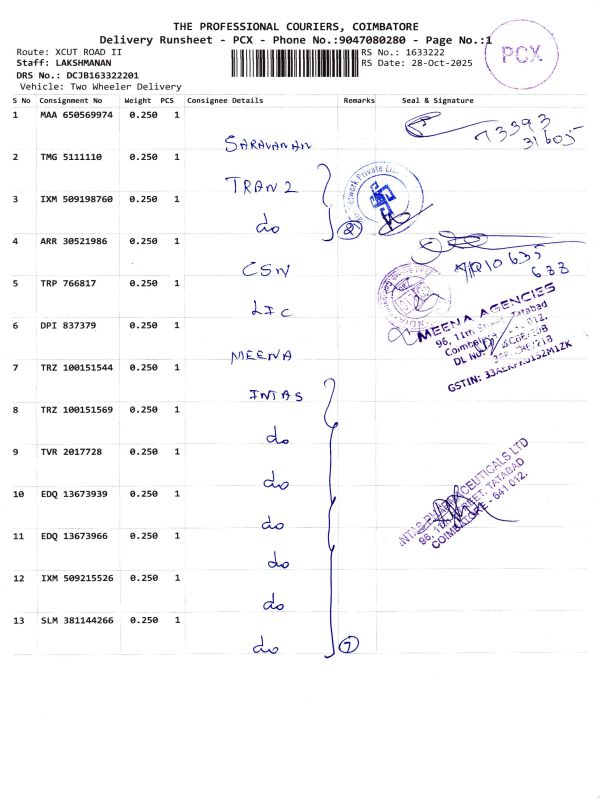 THE PROFESSIONAL COURIERS, COIMBATORE
Delivery Runsheet - PCX - Phone No.:9047080280 - Page No.:1
Route: XCUT ROAD II
RS No.: 1633222
Staff: LAKSHMANAN
RS Date: 28-Oct-2025
DRS No.: DCJB163322201
Vehicle: Two Wheeler Delivery
PCX
S No Consignment No Weight PCS Consignee Details Remarks Seal & Signature
1 MAA 650569974 0.250 1 SARAVANAN
73393
31605
2 TMG 5111110 0.250 1 TRAN 2
Network Private
3 IXM 509198760 0.250 1 do 2
4 ARR 30521986 0.250 1 CSN
10635
633
5 TRP 766817 0.250 1 LIC
6 DPI 837379 0.250 1 MEENA
MEENA AGENCIES
96, 11th Tatabad
012.
DL NO.
GSTIN:
7 TRZ 100151544 0.250 1 INTAS
8 TRZ 100151569 0.250 1 do
9 TVR 2017728 0.250 1 do
10 EDQ 13673939 0.250 1 do
11 EDQ 13673966 0.250 1 do
12 IXM 509215526 0.250 1 do
13 SLM 381144266 0.250 1 do 7
INTAS PHARMACEUTICALS LTD
STREET, TATABAD
COIMBATORE - 641 012.